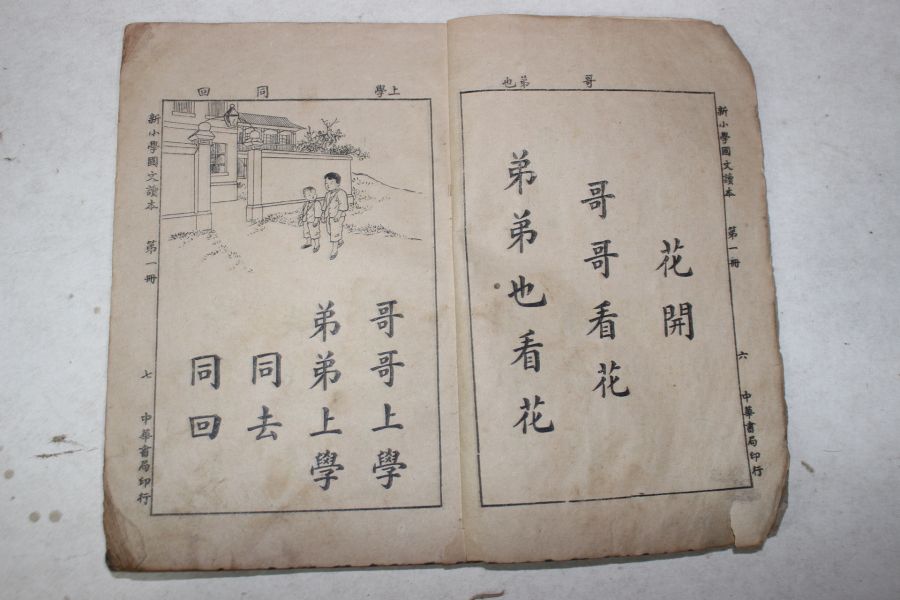 哥　弟也
花開
哥哥看花
弟弟也看花
新小學國文讀本　第一冊　六　中華書局印行
上學　同　回
哥哥上學
弟弟上學
同去
同回
新小學國文讀本　第一冊　七　中華書局印行